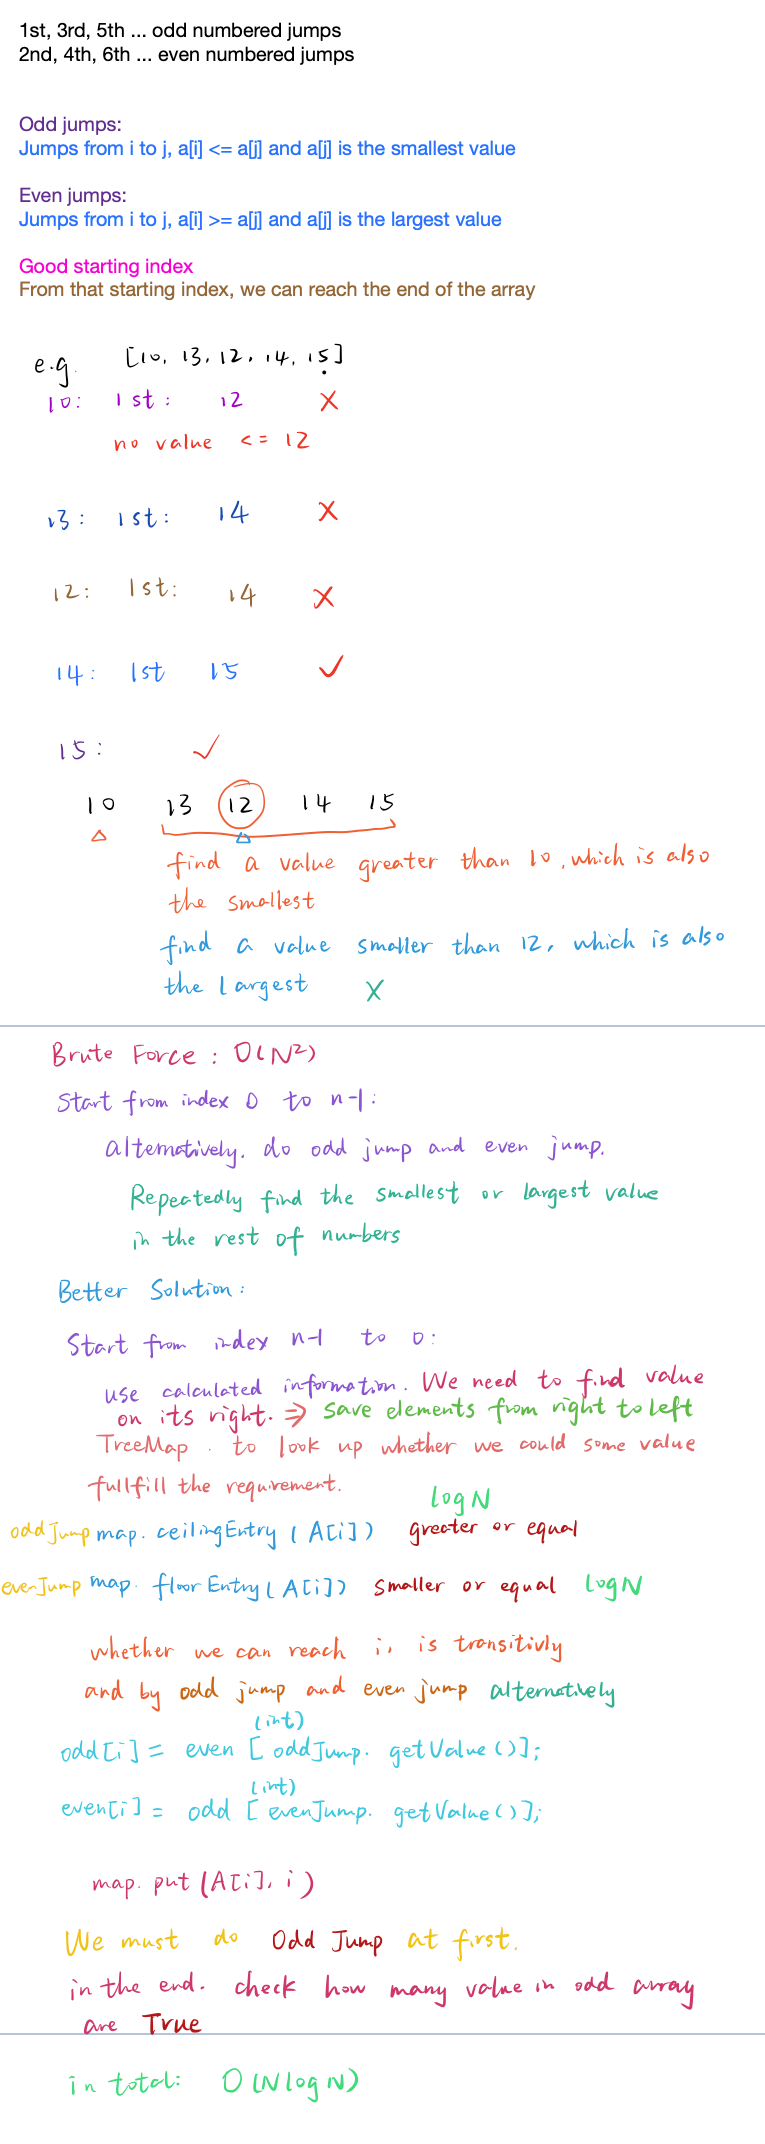 1st, 3rd, 5th ... odd numbered jumps
2nd, 4th, 6th ... even numbered jumps
Odd jumps:
Jumps from i to j, a[i] <= a[j] and a[j] is the smallest value
Even jumps:
Jumps from i to j, a[i] >= a[j] and a[j] is the largest value
Good starting index
From that starting index, we can reach the end of the array
e.g. [10, 13, 12, 14, 15]
10: 1st: 12 X
no value <= 12
13: 1st: 14 X
12: 1st: 14 X
14: 1st 15 ✓
15: ✓
10 13 12 14 15
find a value greater than 10, which is also
the smallest
find a value smaller than 12, which is also
the largest X
Brute Force: O(N²)
Start from index 0 to n-1:
alternatively. do odd jump and even jump.
Repeatedly find the smallest or largest value
in the rest of numbers
Better Solution:
Start from index n-1 to 0:
use calculated information. We need to find value
on its right. => Save elements from right to left
TreeMap. to look up whether we could some value
fullfill the requirement.
logN
oddJump map. ceilingEntry (A[i]) greater or equal
evenJump map. floorEntry (A[i]) smaller or equal logN
whether we can reach i, is transitivly
and by odd jump and even jump alternatively
(int)
odd[i] = even [oddJump. getValue()];
(int)
even[i] = odd [evenJump. getValue()];
map. put (A[i], i)
We must do Odd Jump at first.
in the end. check how many value in odd array
are True
in total: O(NlogN)